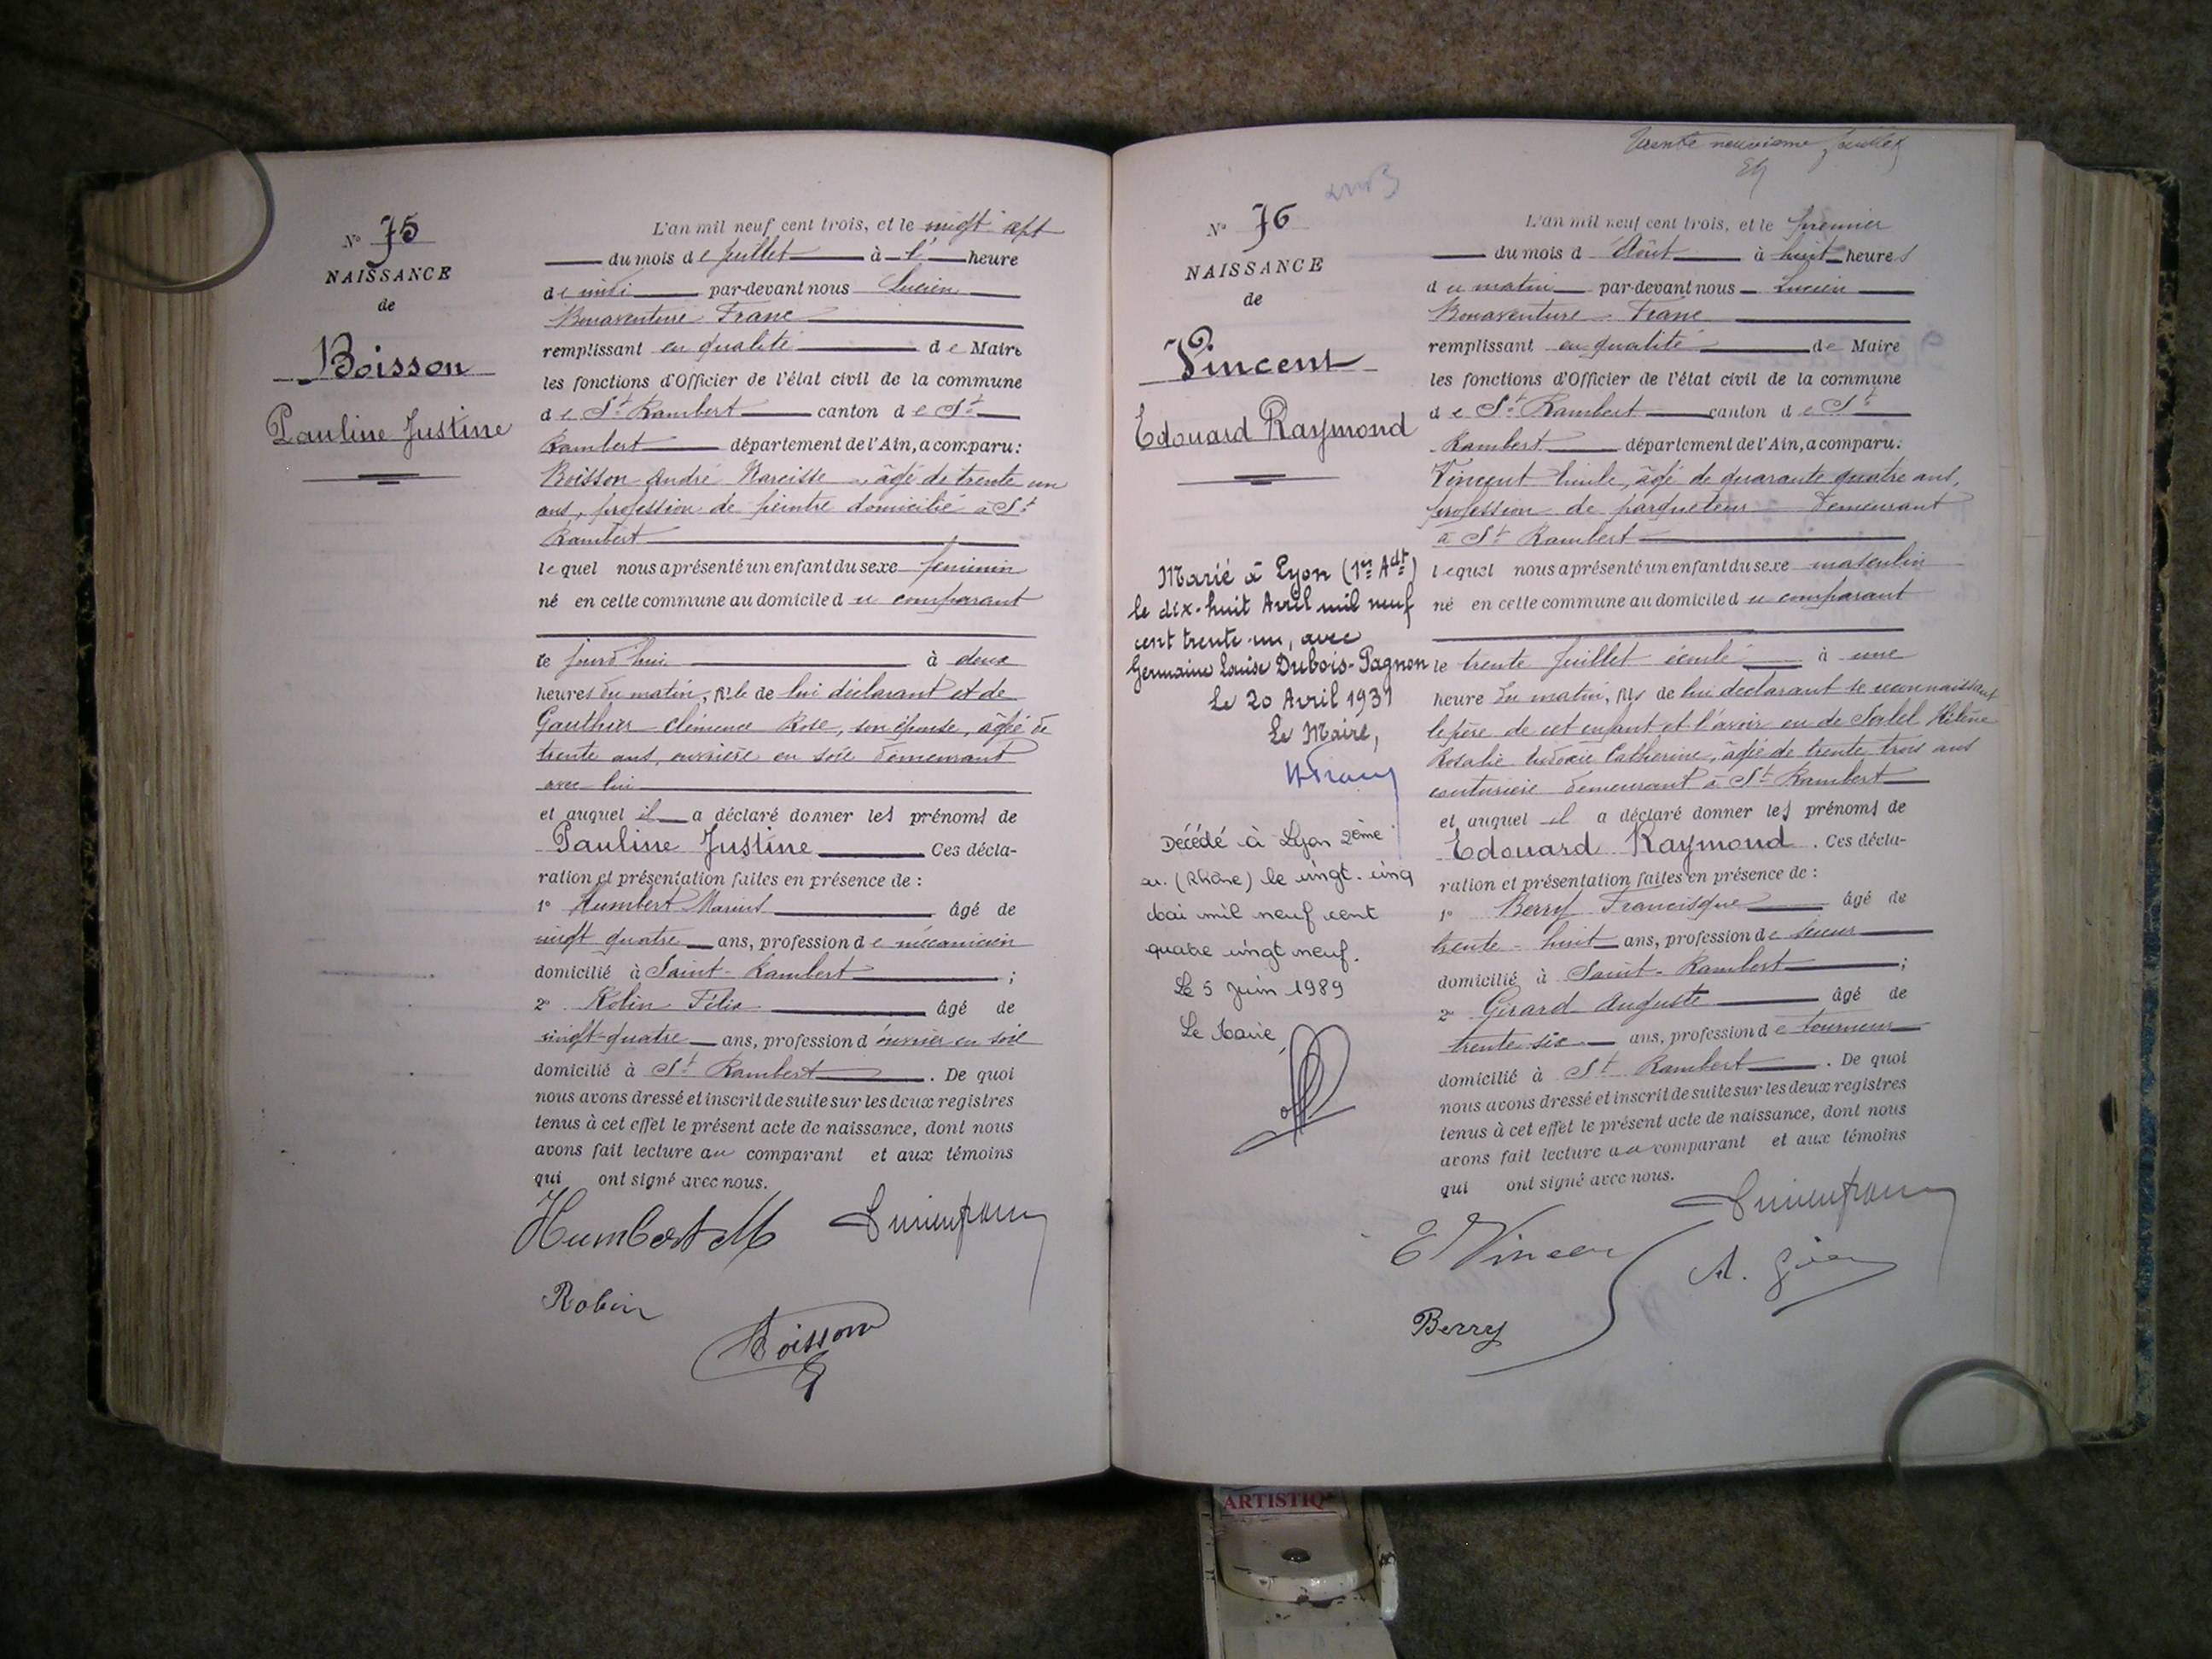 N° 75
NAISSANCE
de
Boisson
Pauline Justine
L'an mil neuf cent trois, et le vingt sept
du mois de juillet à l' heure
de midi par-devant nous Lucien
Bonaventure Franc
remplissant en qualité de Maire
les fonctions d'Officier de l'état civil de la commune
de St Rambert canton de St
Rambert département de l'Ain, a comparu:
Boisson André Narcisse âgé de trente un
ans, profession de peintre domicilié à St
Rambert
lequel nous a présenté un enfant du sexe feminin
né en cette commune au domicile du comparant
le jourd'hui à deux
heures du matin, fille de lui déclarant et de
Gauthier Clémence Rose, son épouse, âgée de
trente ans, ouvrière en soie demeurant
avec lui
et auquel il a déclaré donner les prénoms de
Pauline Justine Ces décla-
ration et présentation faites en présence de :
1° Humbert Marius âgé de
vingt quatre ans, profession de mécanicien
domicilié à Saint-Rambert ;
2° Robin Félix âgé de
vingt-quatre ans, profession d'ouvrier en soie
domicilié à St Rambert . De quoi
nous avons dressé et inscrit de suite sur les deux registres
tenus à cet effet le présent acte de naissance, dont nous
avons fait lecture au comparant et aux témoins
qui ont signé avec nous.
Humbert M
Lucien franc
Robin
Boisson
Trente neuvième feuillet
N° 76
NAISSANCE
de
Vincent
Edouard Raymond
Marié à Lyon (1er Adt)
le dix-huit Avril mil neuf
cent trente-un, avec
Germaine Louise Dubois-Pagnon
Le 20 Avril 1931
Le Maire,
Décédé à Lyon 2ème
ar. (Rhône) le vingt-cinq
Mai mil neuf cent
quatre vingt neuf.
Le 5 Juin 1989
Le Maire,
L'an mil neuf cent trois, et le premier
du mois d'Août à huit heures
du matin par-devant nous Lucien
Bonaventure Franc
remplissant en qualité de Maire
les fonctions d'Officier de l'état civil de la commune
de St Rambert canton de St
Rambert département de l'Ain, a comparu:
Vincent Emile, âgé de quarante quatre ans,
profession de parqueteur demeurant
à St Rambert
lequel nous a présenté un enfant du sexe masculin
né en cette commune au domicile du comparant
le trente Juillet écoulé à une
heure du matin, fils de lui déclarant se reconnaissant
le père de cet enfant et l'avoir eu de Hélène
Rosalie Catherine, âgée de trente trois ans
couturière demeurant à St Rambert
et auquel il a déclaré donner les prénoms de
Edouard Raymond. Ces décla-
ration et présentation faites en présence de :
1° Berry Francisque âgé de
trente-huit ans, profession de
domicilié à Saint-Rambert ;
2° Girard Auguste âgé de
trente-six ans, profession de tourneur
domicilié à St Rambert . De quoi
nous avons dressé et inscrit de suite sur les deux registres
tenus à cet effet le présent acte de naissance, dont nous
avons fait lecture au comparant et aux témoins
qui ont signé avec nous.
Lucien franc
E Vincent
A. Girard
Berry
ARTISTIQ